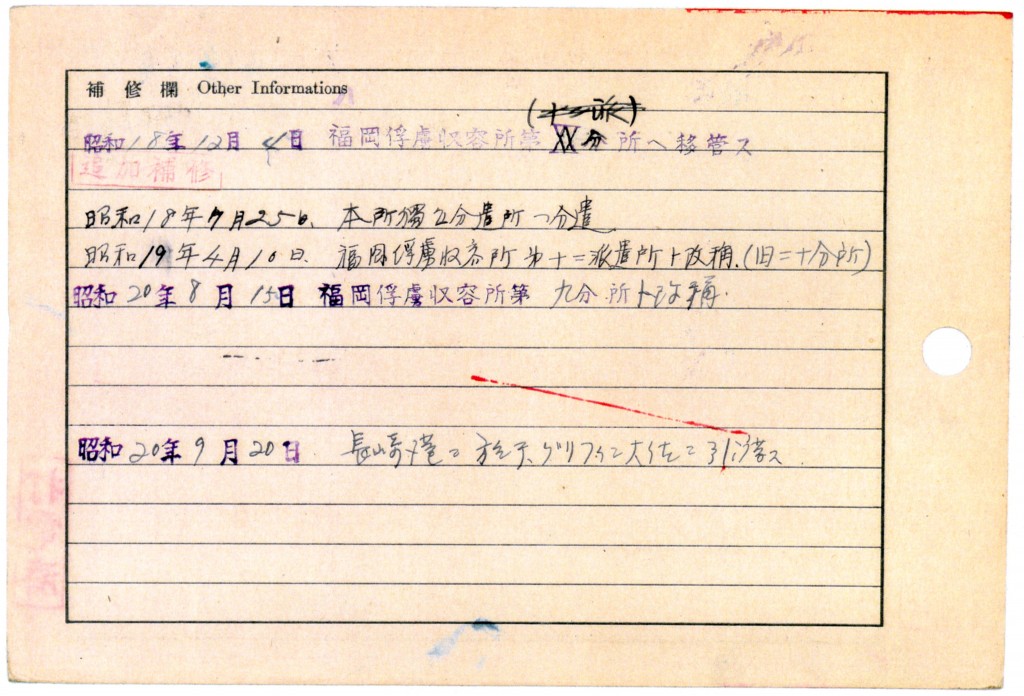 補修欄 Other Informations
(十二派)
昭和18年12月4日 福岡俘虜収容所第XX分所ヘ移管ス
追加補修
昭和18年7月25日、本所獨立分遣所ヘ分遣
昭和19年4月10日 福岡俘虜収容所第十二派遣所ト改稱.(旧二十分所)
昭和20年8月15日 福岡俘虜収容所第九分所ト改稱.
昭和20年9月20日 長崎港ニ於テ、グリフィン大佐ニ引渡ス